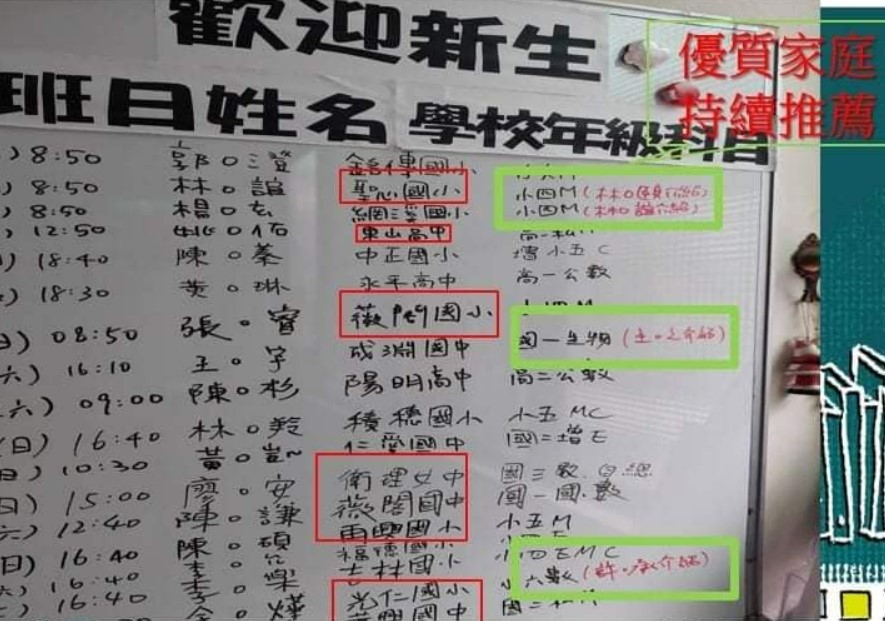 歡迎新生
優質家庭
持續推薦
班日姓名 學校年級科目
8:50 郭○澄 銘傳國小
8:50 林○誼 聖心國小 小四M(林○頤介紹)
8:50 楊○ 網溪國小 小四M(林○誼介紹)
12:50 姚○ 東山高中 高一
18:40 陳○蓁 中正國小 小五C
18:30 黃○琳 永平高中 高一公數
08:50 張○睿 薇閣國小 小四M
六) 16:10 王○宇 成淵國中 國一生物(王○之介紹)
六) 09:00 陳○杉 陽明高中 高二公數
(日) 16:40 林○羚 積穗國小 小五MC
日) 10:30 黃○ 仁愛國中 國二增E
日) 15:00 廖○安 衛理女中 國三數、自總
六) 12:40 陳○謙 薇閣國中 國一國、數
日) 16:40 陳○碩 再興國小 小五M
16:40 李○ 福德國小
16:40 李○樂 士林國小 小四EMC
余○燁 光仁國小 小六數(許○介紹)
再興國中 國二